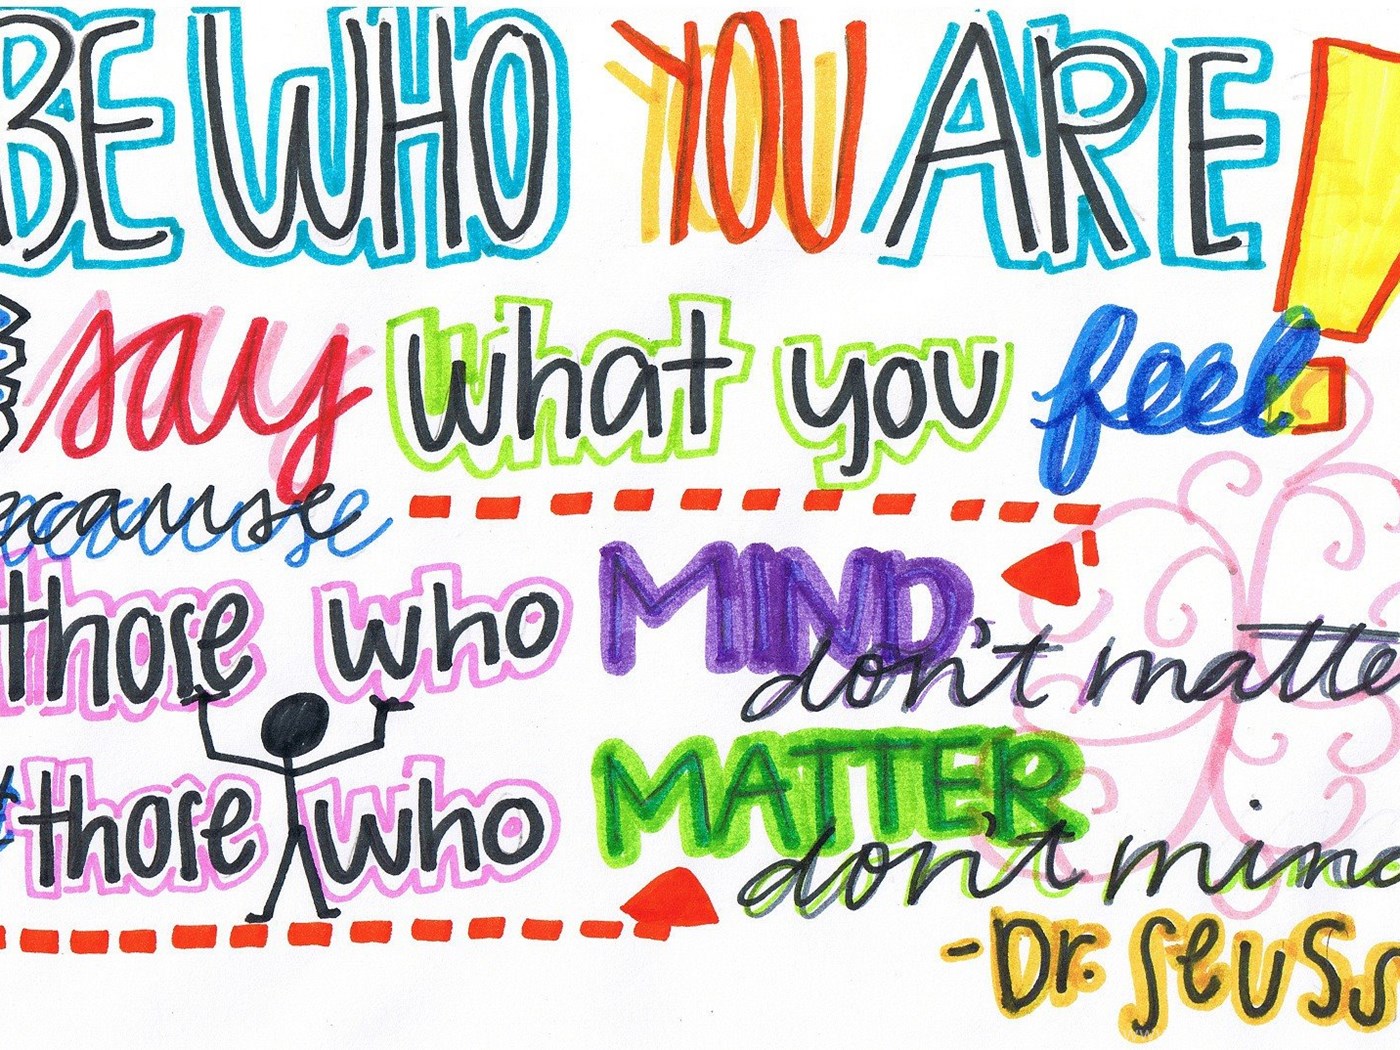 BE WHO YOU ARE!
& say what you feel
ecause
those who MIND don't matte
& those who MATTER don't mind
-Dr. Seuss